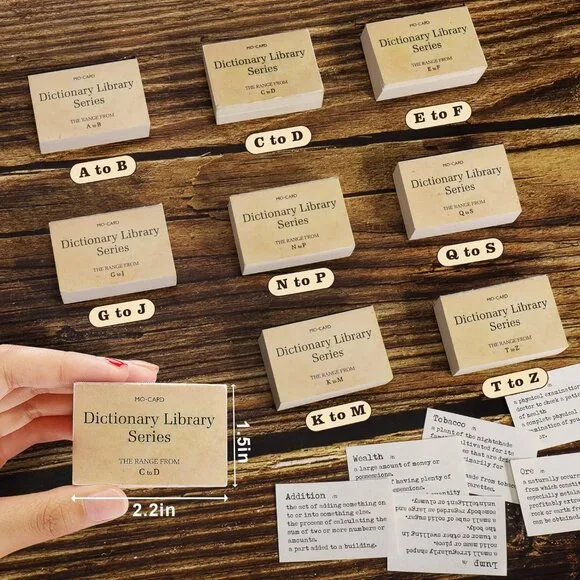 MO-CARD
Dictionary Library
Series
THE RANGE FROM
A to B
A to B
MO-CARD
Dictionary Library
Series
THE RANGE FROM
C to D
C to D
MO-CARD
Dictionary Library
Series
THE RANGE FROM
E to F
E to F
MO-CARD
Dictionary Library
Series
THE RANGE FROM
G to J
G to J
MO-CARD
Dictionary Library
Series
THE RANGE FROM
N to P
N to P
MO-CARD
Dictionary Library
Series
THE RANGE FROM
Q to S
Q to S
MO-CARD
Dictionary Library
Series
THE RANGE FROM
K to M
K to M
MO-CARD
Dictionary Library
Series
THE RANGE FROM
T to Z
T to Z
MO-CARD
Dictionary Library
Series
THE RANGE FROM
C to D
1.5in
2.2in
a physical examination
doctor to check a patie
of health
a complete physical
Tobacco
a plant of the nightshade
Wealth
a large amount of money or
possessions.
having plenty of
possessions.
Ore
a naturally occur
from which constit
especially metals
profitably extrac
rock or earth fro
can be obtained
Addition
the act of adding something on
to or into something else.
the process of calculating the
sum of two or more numbers or
amounts.
a part added to a building.
Lump